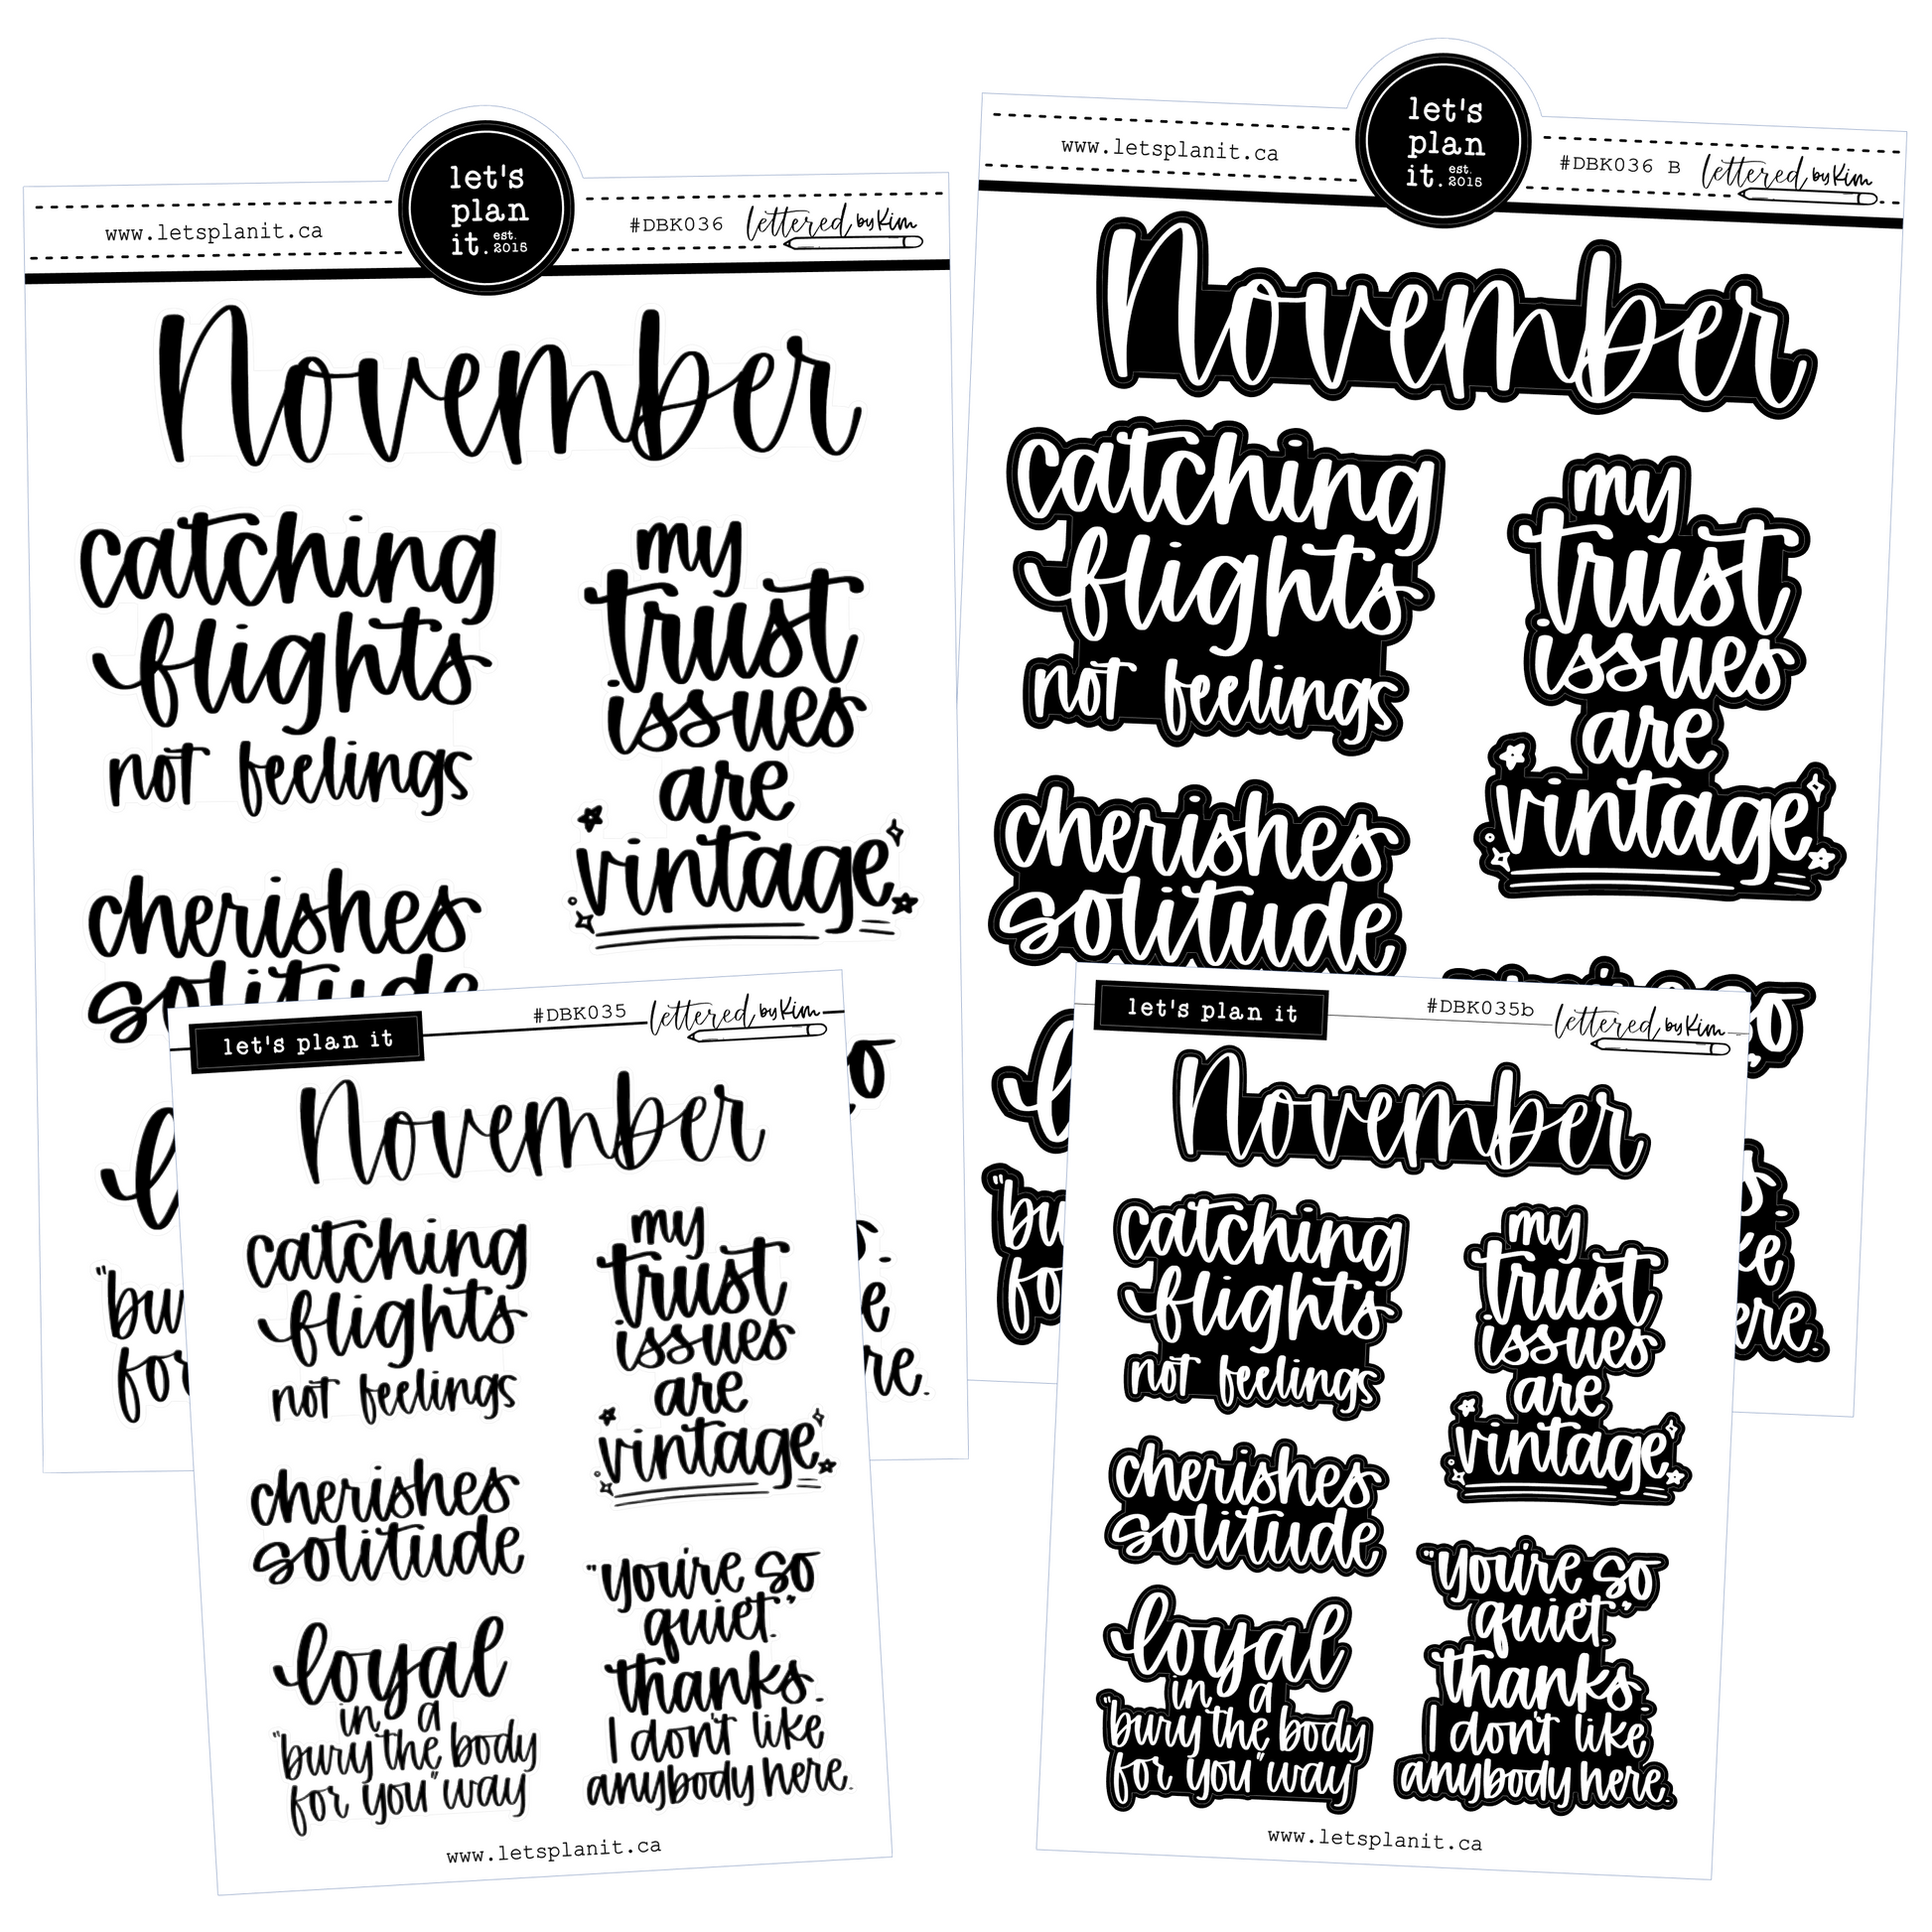 let's
plan
it. est. 2015
www.letsplanit.ca
#DBK036
lettered by Kim
November
catching
flights
not feelings
my
trust
issues
are
vintage
cherishes
solitude
let's
plan
it. est. 2015
www.letsplanit.ca
#DBK036 B
lettered by Kim
November
catching
flights
not feelings
my
trust
issues
are
vintage
cherishes
solitude
let's plan it
#DBK035
lettered by Kim
November
catching
flights
not feelings
my
trust
issues
are
vintage
cherishes
solitude
loyal
in a
"bury the body
for you" way
"you're so
quiet."
thanks.
I don't like
anybody here.
www.letsplanit.ca
let's plan it
#DBK035b
lettered by Kim
November
catching
flights
not feelings
my
trust
issues
are
vintage
cherishes
solitude
loyal
in a
"bury the body
for you" way
"you're so
quiet."
thanks.
I don't like
anybody here.
www.letsplanit.ca